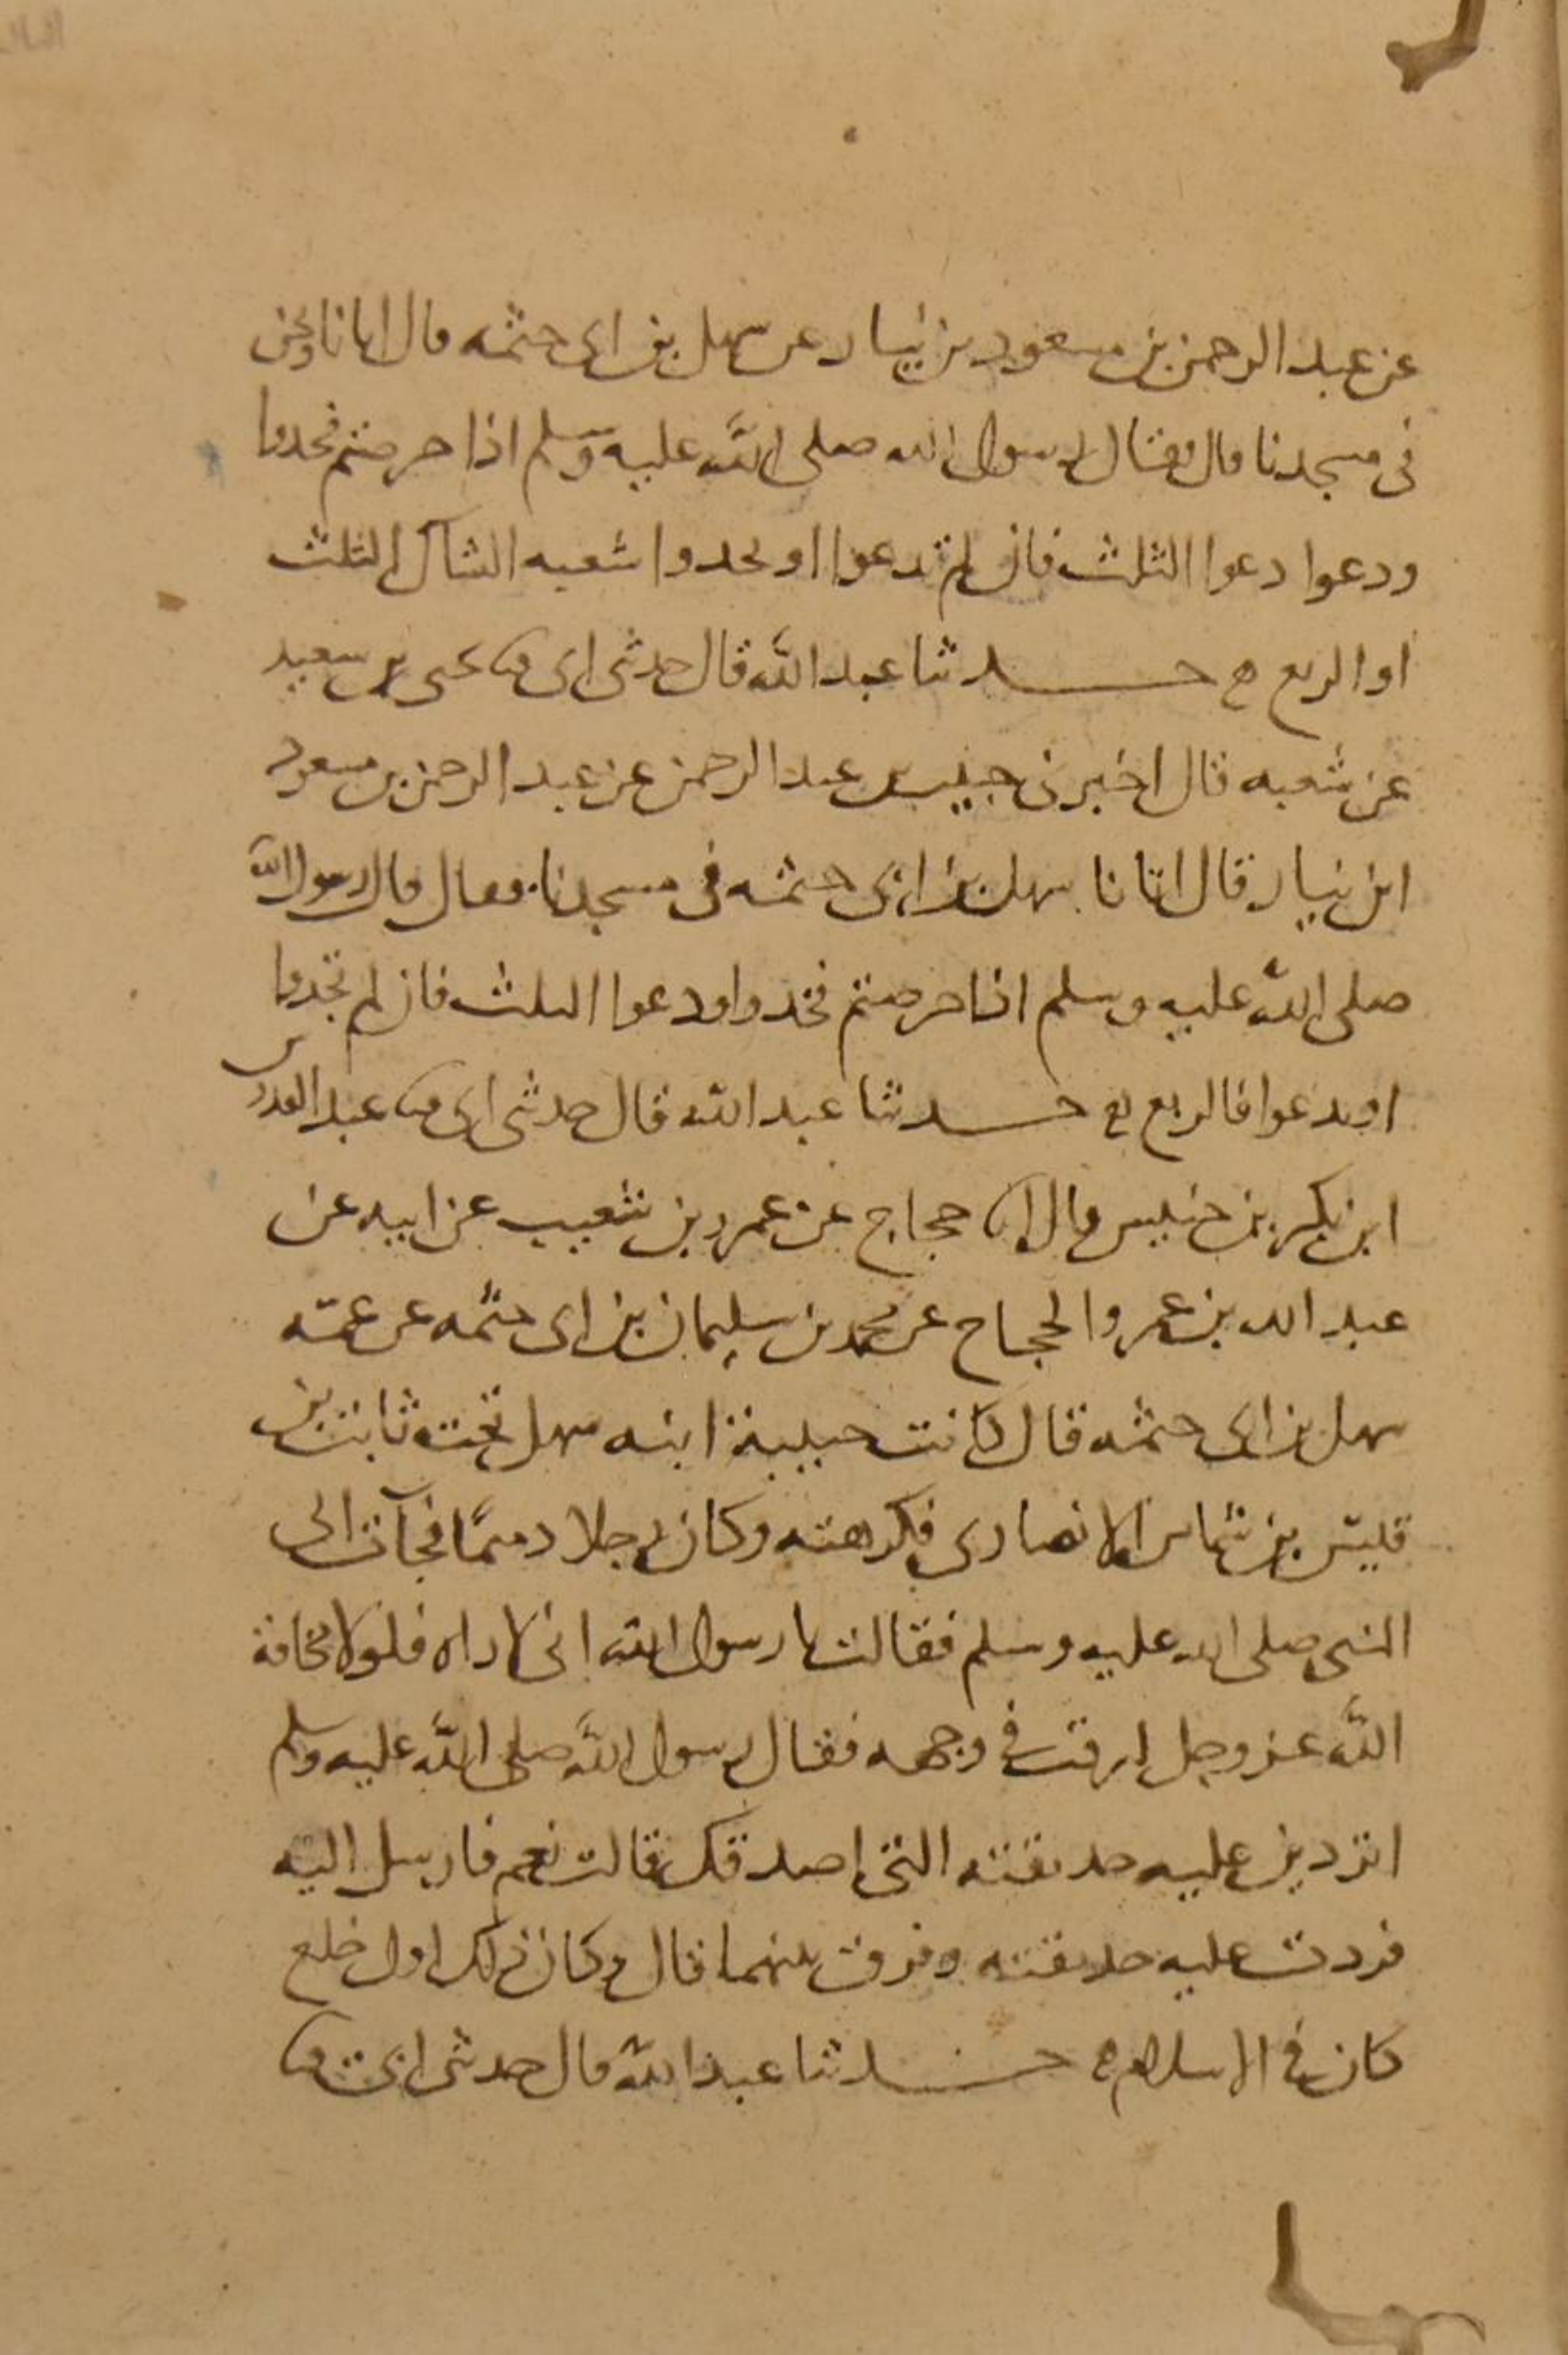 عن عبد الرحمن بن مسعود بن نيار عن سهل بن ابى حثمه قال اتانا ونحن
فى مسجدنا قال فقال رسول الله صلى الله عليه وسلم اذا خرصتم فخذوا
ودعوا دعوا الثلث فان لم تدعوا او تجدوا شعبه الشاك الثلث
او الربع حدثنا عبد الله قال حدثنى ابى ثنا يحيى بن سعيد
عن شعبه قال اخبرنى خبيب بن عبد الرحمن عن عبد الرحمن بن مسعود
ابن نيار قال اتانا سهل بن ابى حثمه فى مسجدنا فقال قال رسول الله
صلى الله عليه وسلم اذا خرصتم فخذوا ودعوا الثلث فان لم تجدوا
او تدعوا فالربع حدثنا عبد الله قال حدثنى ابى ثنا عبد القدوس
ابن بكر بن خنيس قال انا حجاج عن عمرو بن شعيب عن ابيه عن
عبد الله بن عمرو والحجاج عن محمد بن سليمان بن ابى حثمه عن عمه
سهل بن ابى حثمه قال كانت حبيبة ابنه سهل تحت ثابت بن
قيس بن شماس الانصارى فكرهته وكان رجلا دميمًا فجآت الى
النبى صلى الله عليه وسلم فقالت يا رسول الله انى لا اراه فلولا مخافة
الله عز وجل لبزقت فى وجهه فقال رسول الله صلى الله عليه وسلم
اتردين عليه حديقته التى اصدقك قالت نعم فارسل اليه
فردت عليه حديقته وفرق بينهما قال وكان ذلك اول خلع
كان فى الاسلام حدثنا عبد الله قال حدثنى ابى ثنا